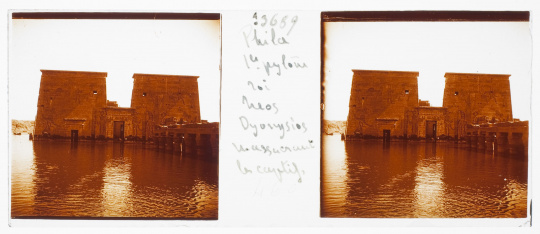 13689
Philæ
1er pylône
roi
Neos
Dyonysios
massacrant
les captifs.